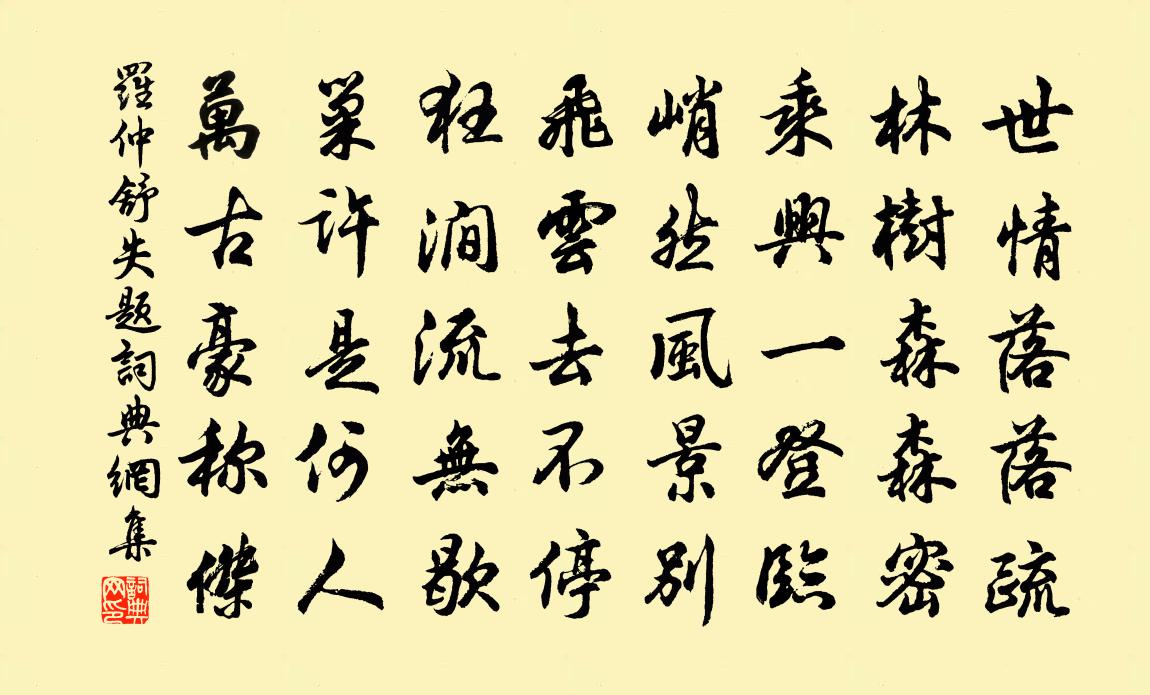 世情落落疏
林樹森森密
乘興一登臨
峭然風景別
飛雲去不停
狂澗流無歇
巢許是何人
萬古豪称傑
羅仲舒失题詞典網集
詞典
网印